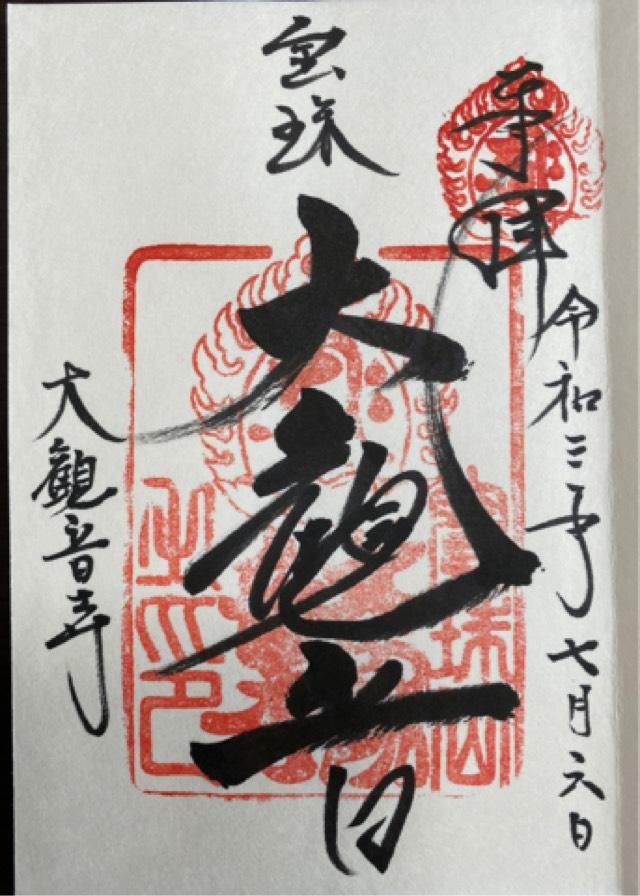 奉拝
令和三年七月六日
宝珠
大観音
大観音寺